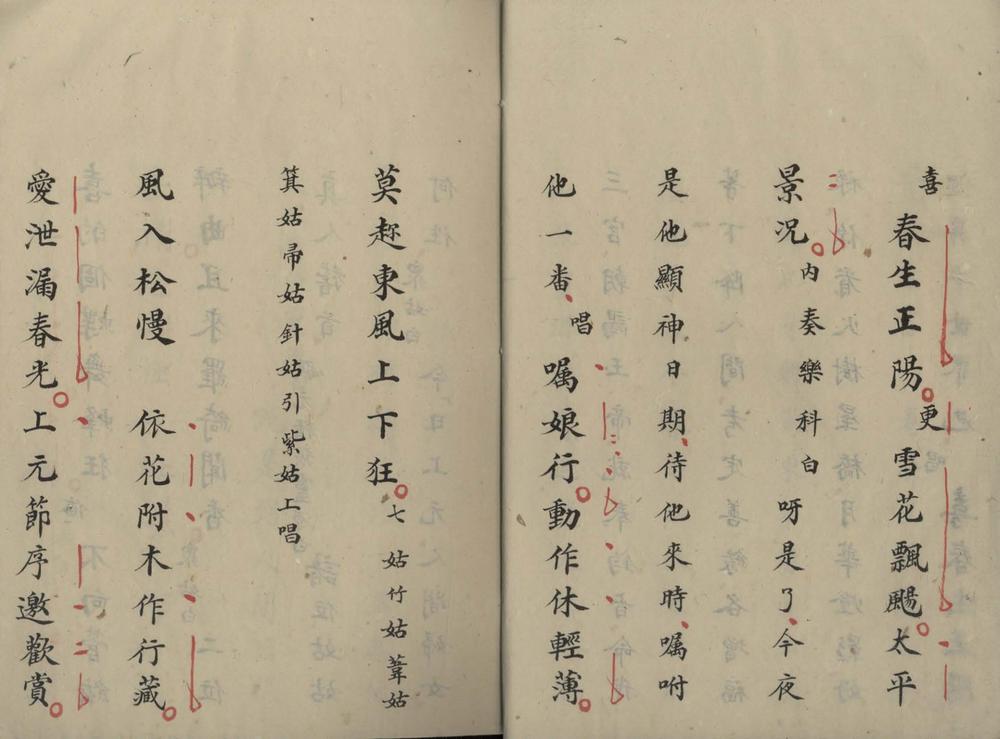 喜春生正陽更雪花飄颺太平
景况內奏樂科白呀是了今夜
是他顯神日期待他來時囑咐
他一番唱囑娘行動作休輕薄
莫趂東風上下狂七姑竹姑葦姑
箕姑帚姑針姑引紫姑上唱
風入松慢 依花附木作行藏
愛泄漏春光上元節序邀歡賞